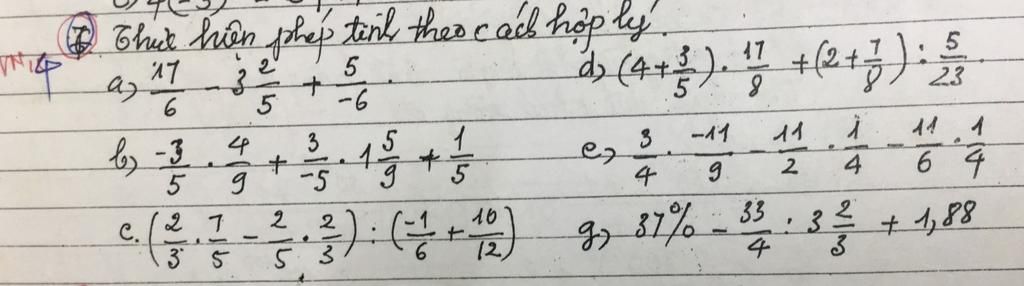 c) 4(-3)
I Thực hiện phép tính theo cách hợp lý.
VN, 4
a) 17/6 - 3 2/5 + 5/-6.
d) (4 + 3/5) . 17/8 + (2 + 7/8) : 5/23.
b) -3/5 . 4/9 + 3/-5 . 1 5/9 + 1/5
e) 3/4 . -11/9 - 11/2 . 1/4 - 11/6 . 1/4
c. (2/3 . 7/5 - 2/5 . 2/3) : (-1/6 + 10/12)
g) 37% - 33/4 : 3 2/3 + 1,88